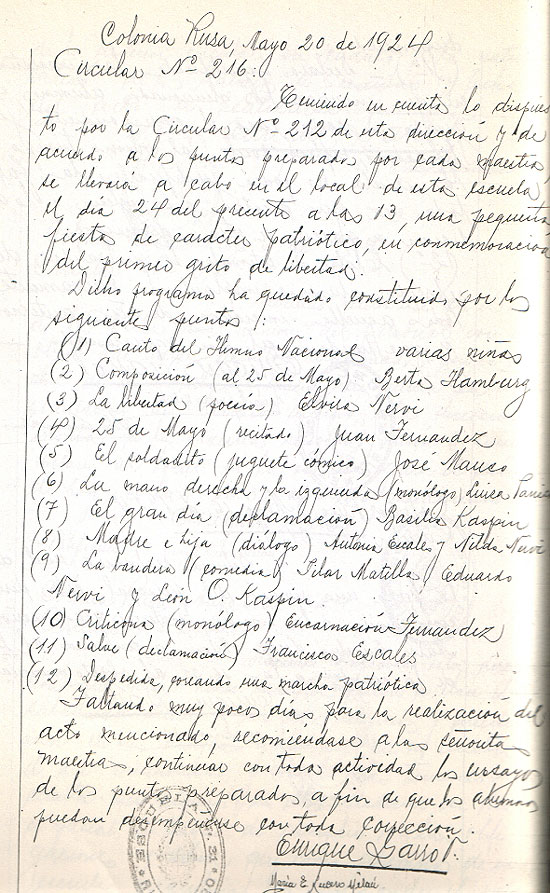 Colonia Rusa, Mayo 20 de 1924
Circular Nº 216:
Teniendo en cuenta lo dispues
to por la Circular Nº 212 de esta dirección y de
acuerdo a los puntos preparados por cada maestra,
se llevará a cabo en el local de esta escuela,
el día 24 del presente a las 13, una pequeña
fiesta de carácter patriótico, en conmemoración
del primer grito de libertad.
Dicho programa ha quedado constituido por los
siguientes puntos:
(1) Canto del Himno Nacional varias niñas
(2) Composición (al 25 de Mayo) Berta Hamburg
(3) La libertad (poesía) Elvira Nervi
(4) 25 de Mayo (recitado) Juan Fernandez
(5) El soldadito (juguete cómico) José Mauco
(6) La mano derecha y la izquierda (monólogo) Luisa
(7) El gran día (declamación) Basilia Kaspin
(8) Madre e hija (diálogo) Antonia Escales y Nilda Nervi
(9) La bandera (comedia) Pilar Matilla, Eduardo
Nervi y León O. Kaspin.
(10) Criticona (monólogo) Encarnación Fernandez
(11) Salve (declamación) Francisco Escales
(12) Despedida, coreando una marcha patriótica
Faltando muy pocos días para la realización del
acto mencionado, recomiéndase a las señoritas
maestras, continuar con toda actividad los ensayos
de los puntos preparados, a fin de que los alumnos
puedan desempeñarse con toda corrección.
Enrique
María E. Lucero